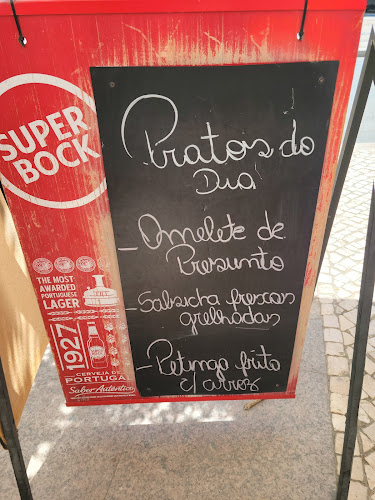 SUPER
BOCK
THE MOST
AWARDED
PORTUGUESE
LAGER
1927
CERVEJA DE
PORTUGAL
Sabor Autêntico
Pratos do
Dia
- Omelete de
Presunto
- Salsicha frescas
grelhadas
- Petinga frito
c/ arroz